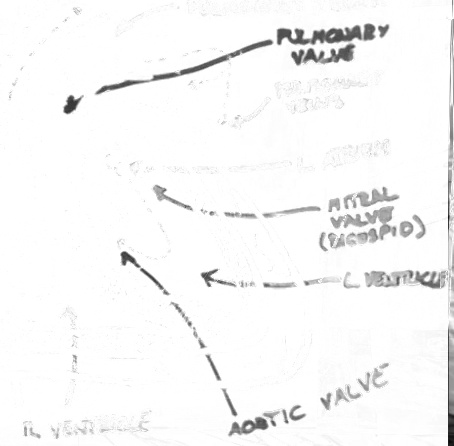 PULMONARY
VALVE
L ATRIUM
MITRAL
VALVE
(BICUSPID)
L VENTRICLE
AORTIC VALVE
R VENTRICLE